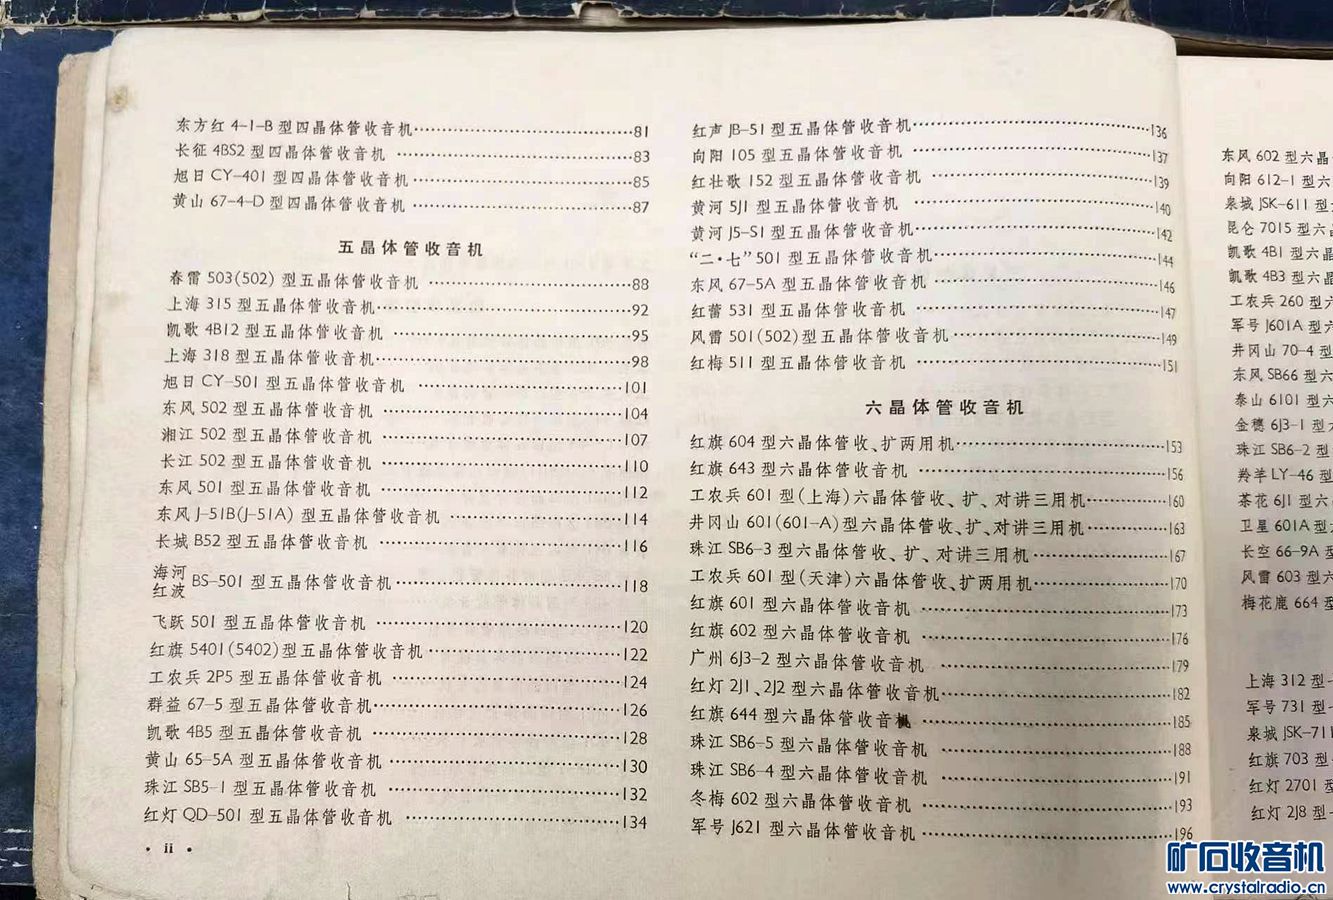 东方红 4-1-B 型四晶体管收音机……81
长征 4BS2 型四晶体管收音机……83
旭日 CY-401 型四晶体管收音机……85
黄山 67-4-D 型四晶体管收音机……87
五晶体管收音机
春雷 503(502) 型五晶体管收音机……88
上海 315 型五晶体管收音机……92
凯歌 4B12 型五晶体管收音机……95
上海 318 型五晶体管收音机……98
旭日 CY-501 型五晶体管收音机……101
东风 502 型五晶体管收音机……104
湘江 502 型五晶体管收音机……107
长江 502 型五晶体管收音机……110
东风 501 型五晶体管收音机……112
东风 J-51B(J-51A) 型五晶体管收音机……114
长城 B52 型五晶体管收音机……116
海河
红波 BS-501 型五晶体管收音机……118
飞跃 501 型五晶体管收音机……120
红旗 5401(5402)型五晶体管收音机……122
工农兵 2P5 型五晶体管收音机……124
群益 67-5 型五晶体管收音机……126
凯歌 4B5 型五晶体管收音机……128
黄山 65-5A 型五晶体管收音机……130
珠江 SB5-1 型五晶体管收音机……132
红灯 QD-501 型五晶体管收音机……134
· ii ·
红声 JB-51 型五晶体管收音机……136
向阳 105 型五晶体管收音机……137
红壮歌 152 型五晶体管收音机……139
黄河 5J1 型五晶体管收音机……140
黄河 J5-S1 型五晶体管收音机……142
“二·七” 501 型五晶体管收音机……144
东风 67-5A 型五晶体管收音机……146
红蕾 531 型五晶体管收音机……147
风雷 501(502)型五晶体管收音机……149
红梅 511 型五晶体管收音机……151
六晶体管收音机
红旗 604 型六晶体管收、扩两用机……153
红旗 643 型六晶体管收音机……156
工农兵 601 型(上海)六晶体管收、扩、对讲三用机……160
井冈山 601(601-A)型六晶体管收、扩、对讲三用机……163
珠江 SB6-3 型六晶体管收、扩、对讲三用机……167
工农兵 601 型(天津)六晶体管收、扩两用机……170
红旗 601 型六晶体管收音机……173
红旗 602 型六晶体管收音机……176
广州 6J3-2 型六晶体管收音机……179
红灯 2J1、2J2 型六晶体管收音机……182
红旗 644 型六晶体管收音机……185
珠江 SB6-5 型六晶体管收音机……188
珠江 SB6-4 型六晶体管收音机……191
冬梅 602 型六晶体管收音机……193
军号 J621 型六晶体管收音机……196
东风 602 型六晶
向阳 612-1 型六
泉城 JSK-611 型
昆仑 7015 型六晶
凯歌 4B1 型六晶
凯歌 4B3 型六晶
工农兵 260 型六
军号 J601A 型六
井冈山 70-4 型
东风 SB66 型六
泰山 6101 型六
金穗 6J3-1 型六
珠江 SB6-2 型
羚羊 LY-46 型
茶花 6J1 型六
卫星 601A 型
长空 66-9A 型
风雷 603 型六
梅花鹿 664 型
上海 312 型
军号 731 型
泉城 JSK-711
红旗 703 型
红灯 2701 型
红灯 2J8 型
矿石收音机
www.crystalradio.cn